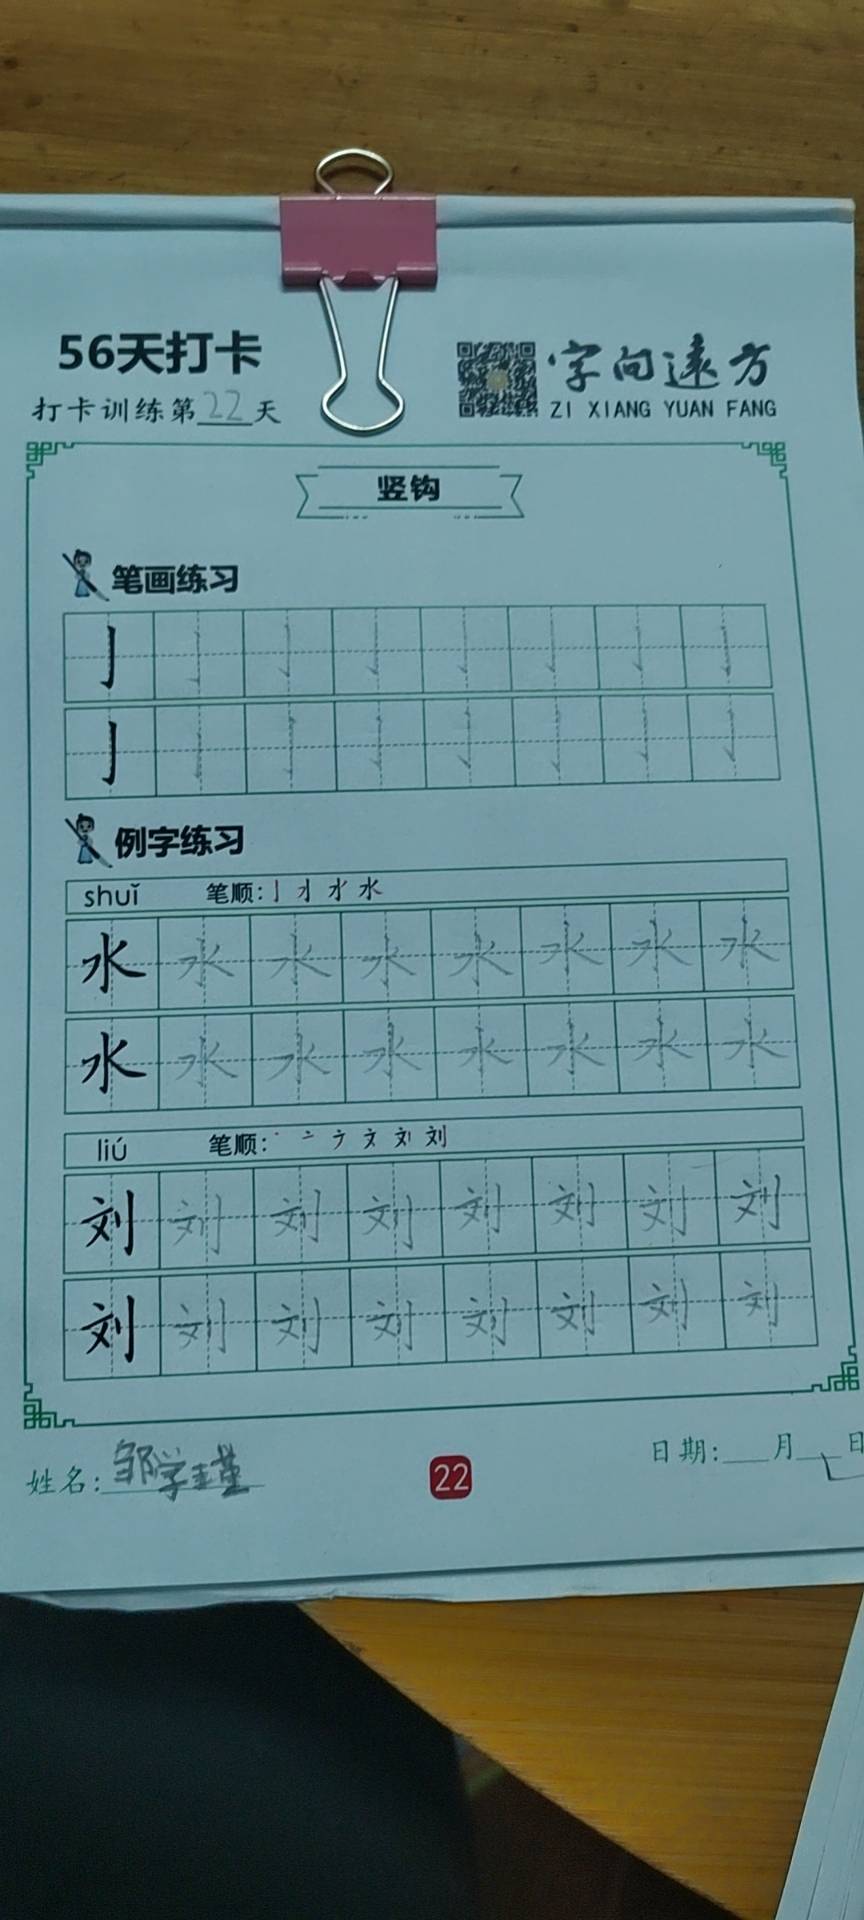 56天打卡
字向远方
打卡训练第22天
ZI XIANG YUAN FANG
竖钩
笔画练习
亅亅亅亅亅亅亅亅
亅亅亅亅亅亅亅亅
例字练习
shuǐ 笔顺:亅 水
水水水水水水水水
水水水水水水水水
liú 笔顺:丶 亠 文 刘
刘刘刘刘刘刘刘刘
刘刘刘刘刘刘刘刘
姓名:邹学瑾
22
日期:___月___日